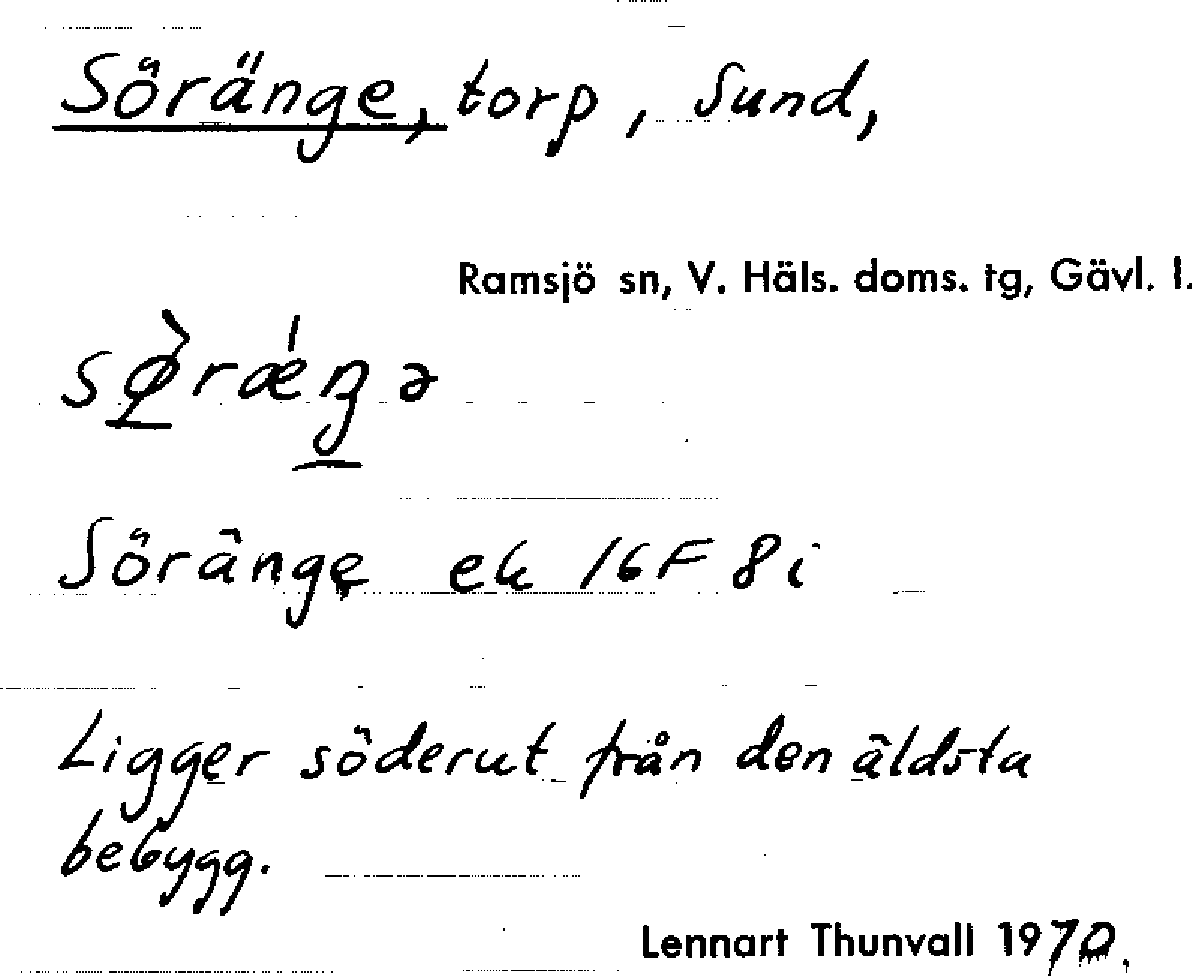 Söränge, torp, Sund,
Ramsjö sn, V. Häls. doms. tg, Gävl. l.
sø̀rǽŋə
Söränge ek 16F 8i
Ligger söderut från den äldsta
bebygg.
Lennart Thunvall 1970.